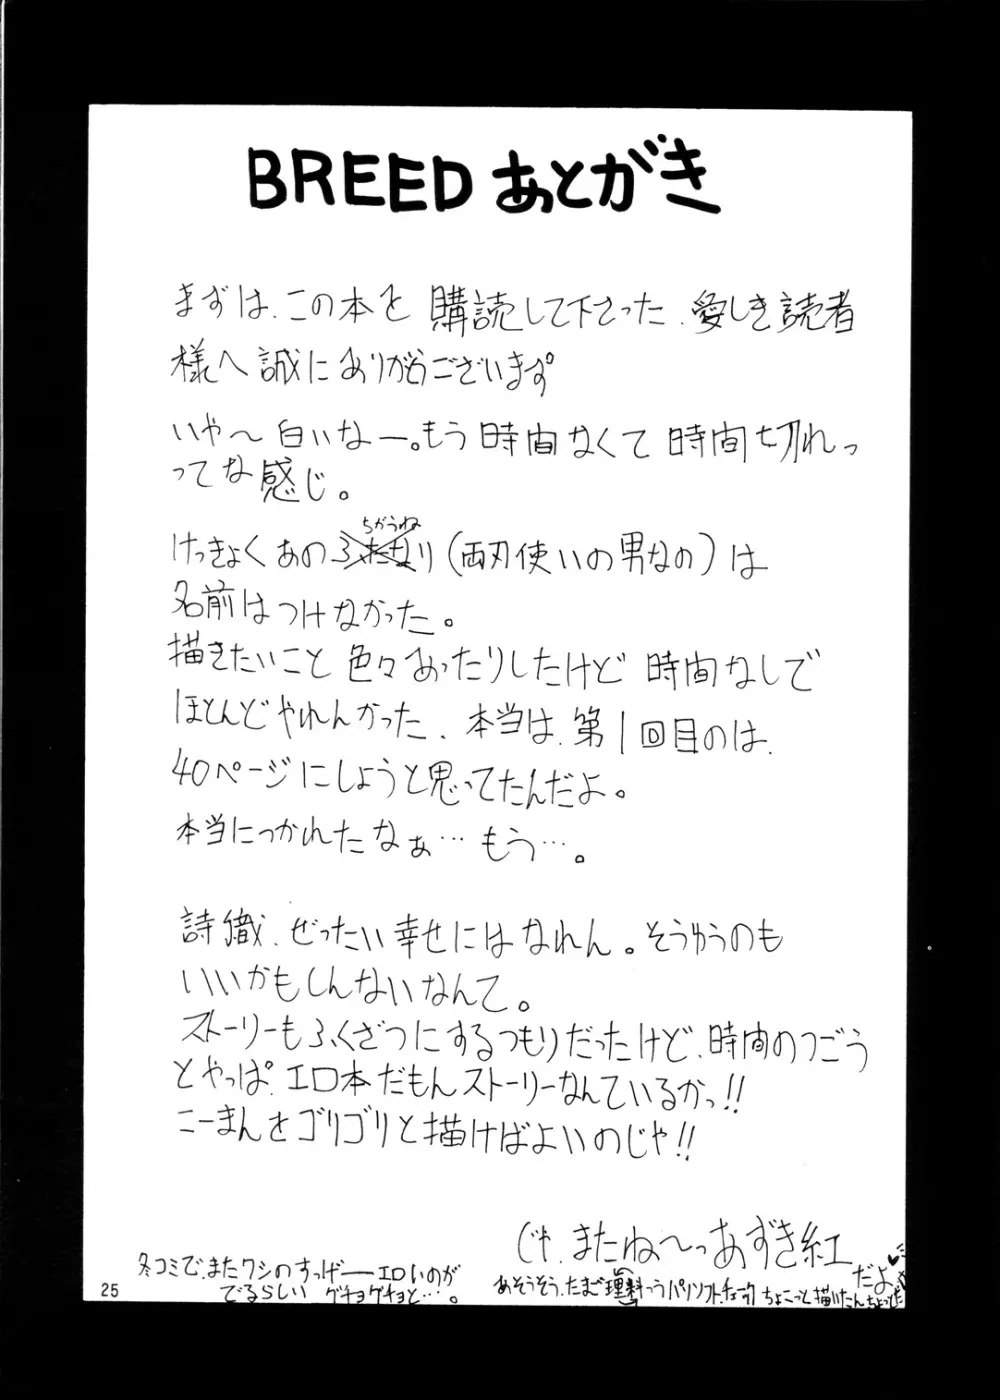 BREED あとがき
まずは、この本を購読して下さった、愛しき読者
様へ誠にありがとうございます。
いや〜白いなー。もう時間なくて時間切れっ
ってな感じ。
ちがうね
けっきょくあのふたなり(両刃使いの男なの)は
名前はつけなかった。
描きたいこと色々あったりしたけど時間なしで
ほとんどやれんかった、本当は、第1回目のは、
40ページにしようと思ってたんだよ。
本当につかれたなぁ…もう…。
詩織、ぜったい幸せにはなれん。そうゆうのも
いいかもしんないなんて。
ストーリーもふくざつにするつもりだったけど、時間のつごう
とやっぱ、エロ本だもんストーリーなんているかっ!!
こーまんをゴリゴリと描けばよいのじゃ!!
じゃ、またね〜っあずき紅
だよ♥
冬コミで、またワシのすっげーーエロいのが
でるらしい ゲチョゲチョと…。
あそうそう、たまご理料っつうパソソフト、チェック ちょこっと描いたん
25